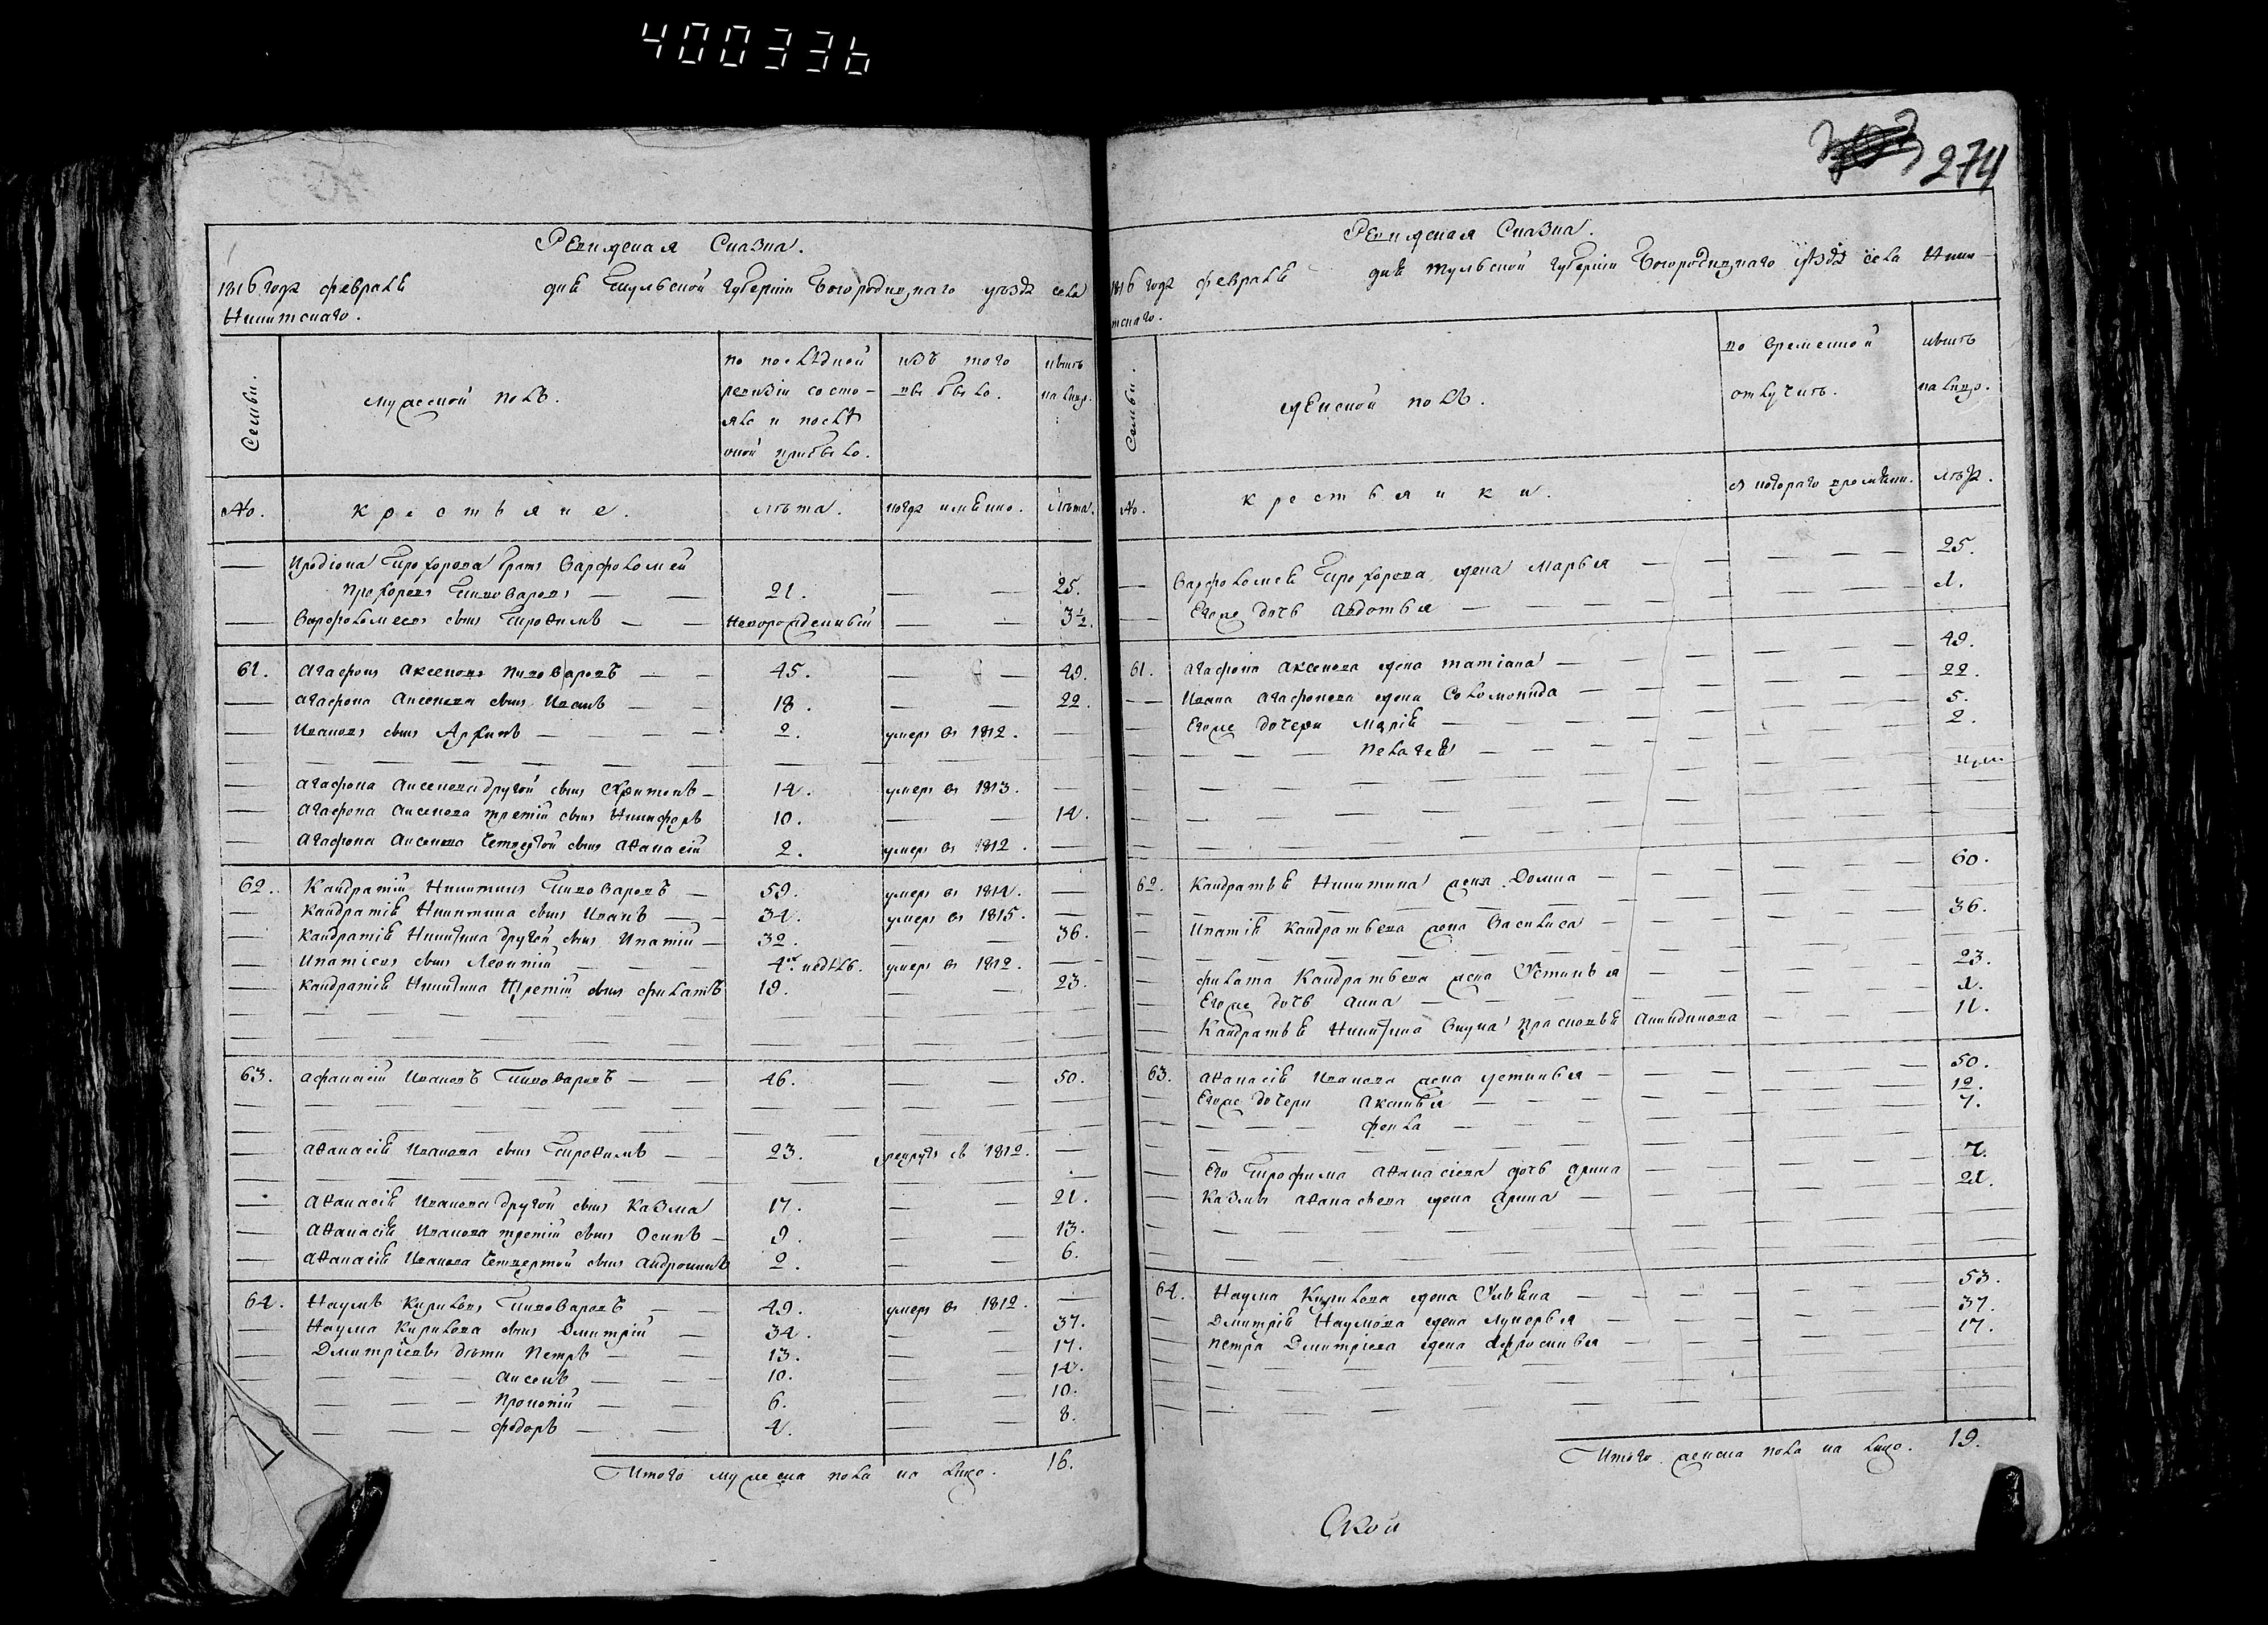 400336
274
Ревижская Сказка.
1816 года февраля дня Тульской губернии Богородицкаго уезда села
Никитскаго.
Семьи.
мужеской полъ.
по последной
ревизіи состо-
яло и после
оной прибыло.
изъ того
выбыло.
ныне
на лицо.
No.
крестьяне.
лѣта.
когда имянно.
лѣта.
Иродіона Прохорова братъ Варфоломей
Прохоровъ Пивоваровъ — — 21. — — 25.
Варфоломеевъ сынъ Трофимъ — — неворожденный — — 3½.
61. Агафонъ Аксеновъ Пивоваровъ — — 45. — — 49.
— Агафона Аксенова сынъ Иванъ — — 18. — — 22.
— Ивановъ сынъ Архипъ — — — — 2. умеръ въ 1812. —
— Агафона Аксенова другой сынъ Харитонъ — 14. умеръ въ 1813. —
— Агафона Аксенова третій сынъ Никифоръ 10. — — 14.
— Агафона Аксенова четвертой сынъ Афанасій 2. умеръ въ 1812. —
62. Кандратій Никитинъ Пивоваровъ — 59. умеръ въ 1814. —
— Кандратія Никитина сынъ Иванъ — — 34. умеръ въ 1815. —
— Кандратія Никитина другой сынъ Ипатій — 32. — — 36.
— Ипатіевъ сынъ Леонтій — — — 4. недѣль. умеръ въ 1812. —
— Кандратія Никитина третій сынъ Филатъ 19. — — 23.
63. Афанасій Ивановъ Пивоваровъ — — 46. — — 50.
— Афанасія Иванова сынъ Трофимъ — — 23. рекрутъ въ 1812. —
— Афанасія Иванова другой сынъ Казма 17. — — 21.
— Афанасія Иванова третій сынъ Осипъ — 9. — — 13.
— Афанасія Иванова четвертой сынъ Андроникъ 2. — — 6.
64. Наумъ Кириловъ Пивоваровъ — — 49. умеръ въ 1812. —
— Наума Кирилова сынъ Дмитрій — 34. — — 37.
— Дмитріевы дѣти Петръ — — 13. — — 17.
— — — — Аксенъ — — — 10. — — 14.
— — — — Прокопій — — 6. — — 10.
— — — — Федоръ — — 4. — — 8.
Итого мужеска пола на лицо. 16.
Ревижская Сказка.
1816 года февраля дня Тульской губерніи Богородицкаго уѣзда села Ники-
тскаго.
Семьи.
женской полъ.
во временной
отлучкѣ.
ныне
на лицо.
No.
крестьянки.
съ котораго времяни.
лѣта.
— Варфоломея Прохорова жена Марья — — 25.
— Егоже дочь Авдотья — — — 1.
61. Агафона Аксенова жена Татіана — — 49.
— Ивана Агафонова жена Соломонида — — 22.
— Егоже дочери Марія — — — 5.
— — — Пелагея — — — 2.
62. Кандратья Никитина жена Домна — — 60.
— Ипатія Кандратьева жена Василиса — 36.
— Филата Кандратьева жена Устинья — — 23.
— Егоже дочь Анна — — — 1.
— Кандратья Никитина внука Прасковья — — 11.
63. Афанасія Иванова жена Устинья — — 50.
— Егоже дочери Аксинья — — — 12.
— — — Фекла — — — 7.
— Его Трофима Афанасіева дочь Арина — 4.
— Казмы Афанасьева жена Арина — — 21.
64. Наума Кирилова жена Ульяна — — 53.
— Дмитрія Наумова жена Лукерья — — 37.
— Петра Дмитріева жена Афросинья — — 17.
Итого женска пола на лицо. 19.
Ской